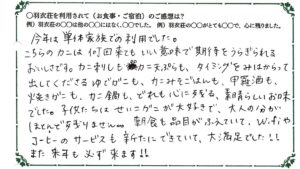 ○羽衣荘を利用されて（お食事・ご宿泊）のご感想は？
例）羽衣荘の○○は他の○○にはなく○○でした。 例）羽衣荘の、○○がとても○○で、心に残りました。
今年は単体家族での利用でした。
こちらのカニは何回来てもいい意味で期待をうらぎられる
おいしさです。カニ刺しも カニ天ぷらも、タイミングをみはからって
出してくださる ゆでガニも、カニみそごはんも、甲羅酒も、
焼きガニも、カニ鍋も、どれも心に残る、素晴らしいお味
でした。子供たちは せいこガニが大好きで、大人の分が
ほとんど残りません。 朝食も品目がふえていて、Wi-fiや
コーヒーのサービスも 新たにできていて、大満足でした!!
また 来年も 必ず 来ます!!